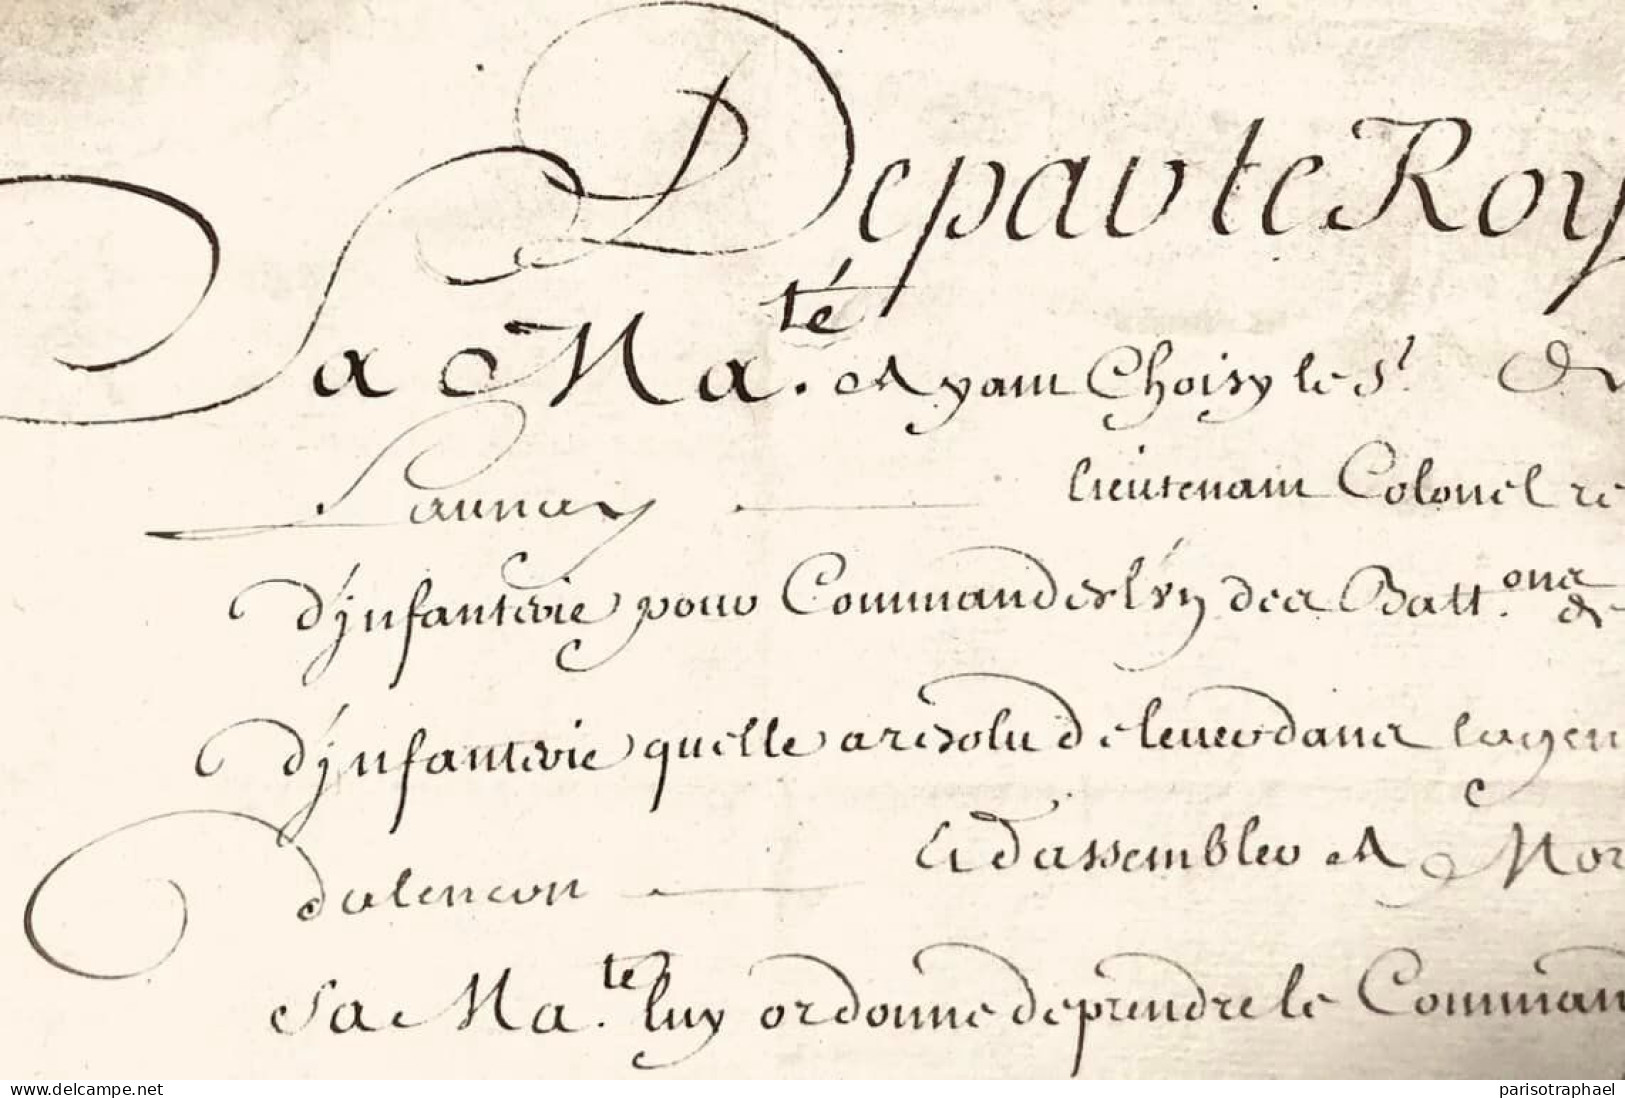 De par le Roy
Sa Ma.té Ayant Choisy le Sr. de
Launay lieutenant Colonel re
d'jnfanterie pour Commander l'vn des Batt.ons de
d'jnfanterie quelle a resolu de lever dans la gen
dalencon et dassembler A Mor
Sa Ma.te luy ordonne de prendre le Comman
www.delcampe.net
parisotraphael